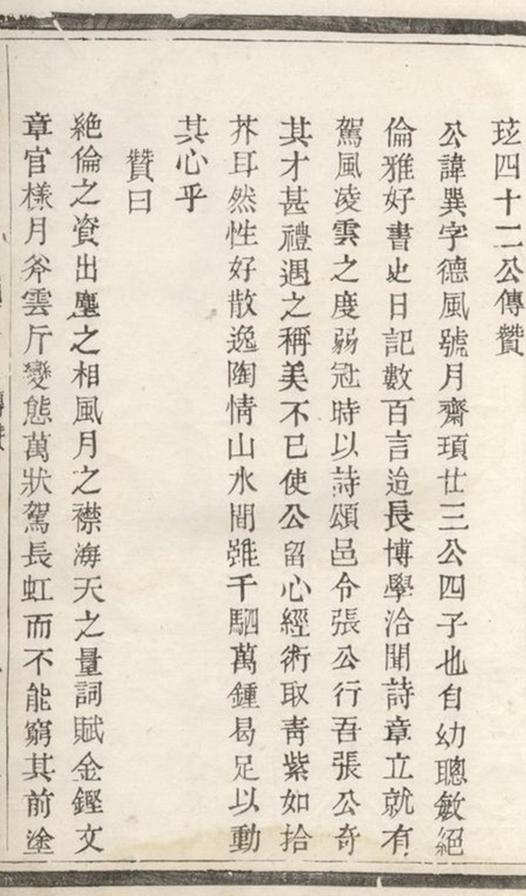 玹四十二公傳贊
公諱巽字德風號月齋頊廿三公四子也自幼聰敏絕
倫雅好書史日記數百言迨長博學洽聞詩章立就有
駕風凌雲之度弱冠時以詩頌邑令張公行吾張公奇
其才甚禮遇之稱美不已使公留心經術取青紫如拾
芥耳然性好散逸陶情山水間雖千駟萬鍾曷足以動
其心乎
贊曰
絕倫之資出塵之相風月之襟海天之量詞賦金鏗文
章官樣月斧雲斤變態萬狀駕長虹而不能窮其前塗